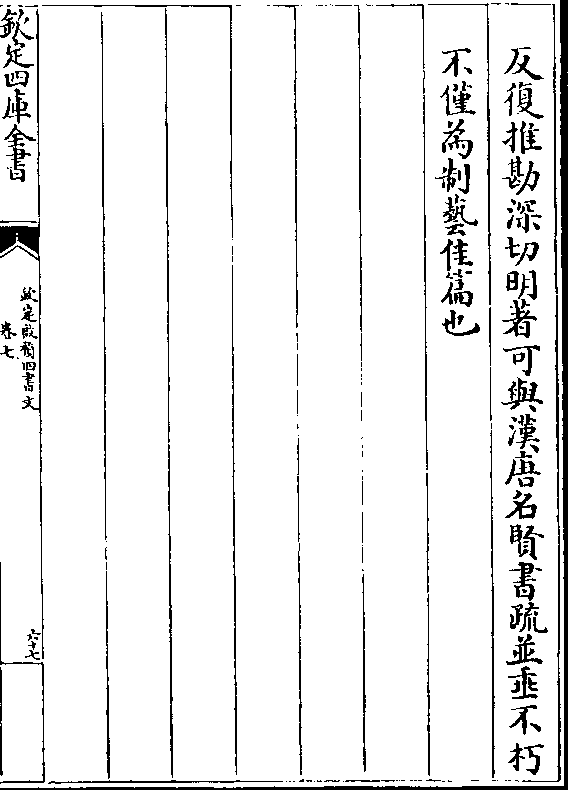 反復推勘深切明著可與漢唐名賢書疏並垂不朽
不僅為制藝佳篇也
欽定四庫全書
欽定啟禎四書文
卷七
六十七